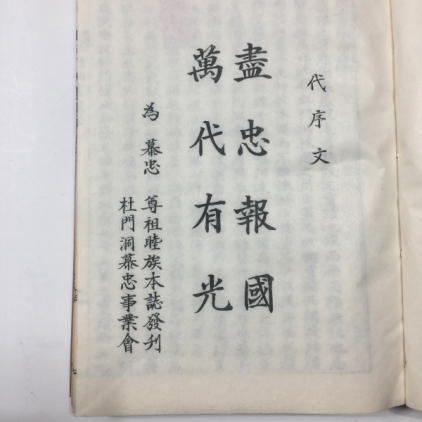 代序文
盡忠報國
萬代有光
為 慕忠 尊祖睦族本誌發刊
杜門洞慕忠事業會